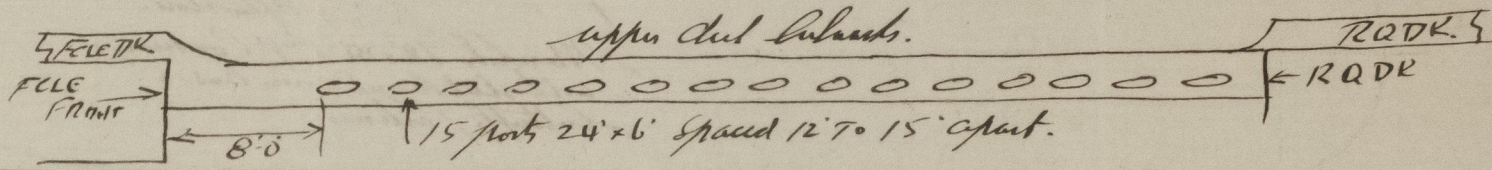 upper deck bulwarks.
FCLE DK
RQDK.
FCLE
FRONT
← RQDK
8'-0"
15 ports 24" x 6" Spaced 12" To 15" apart.